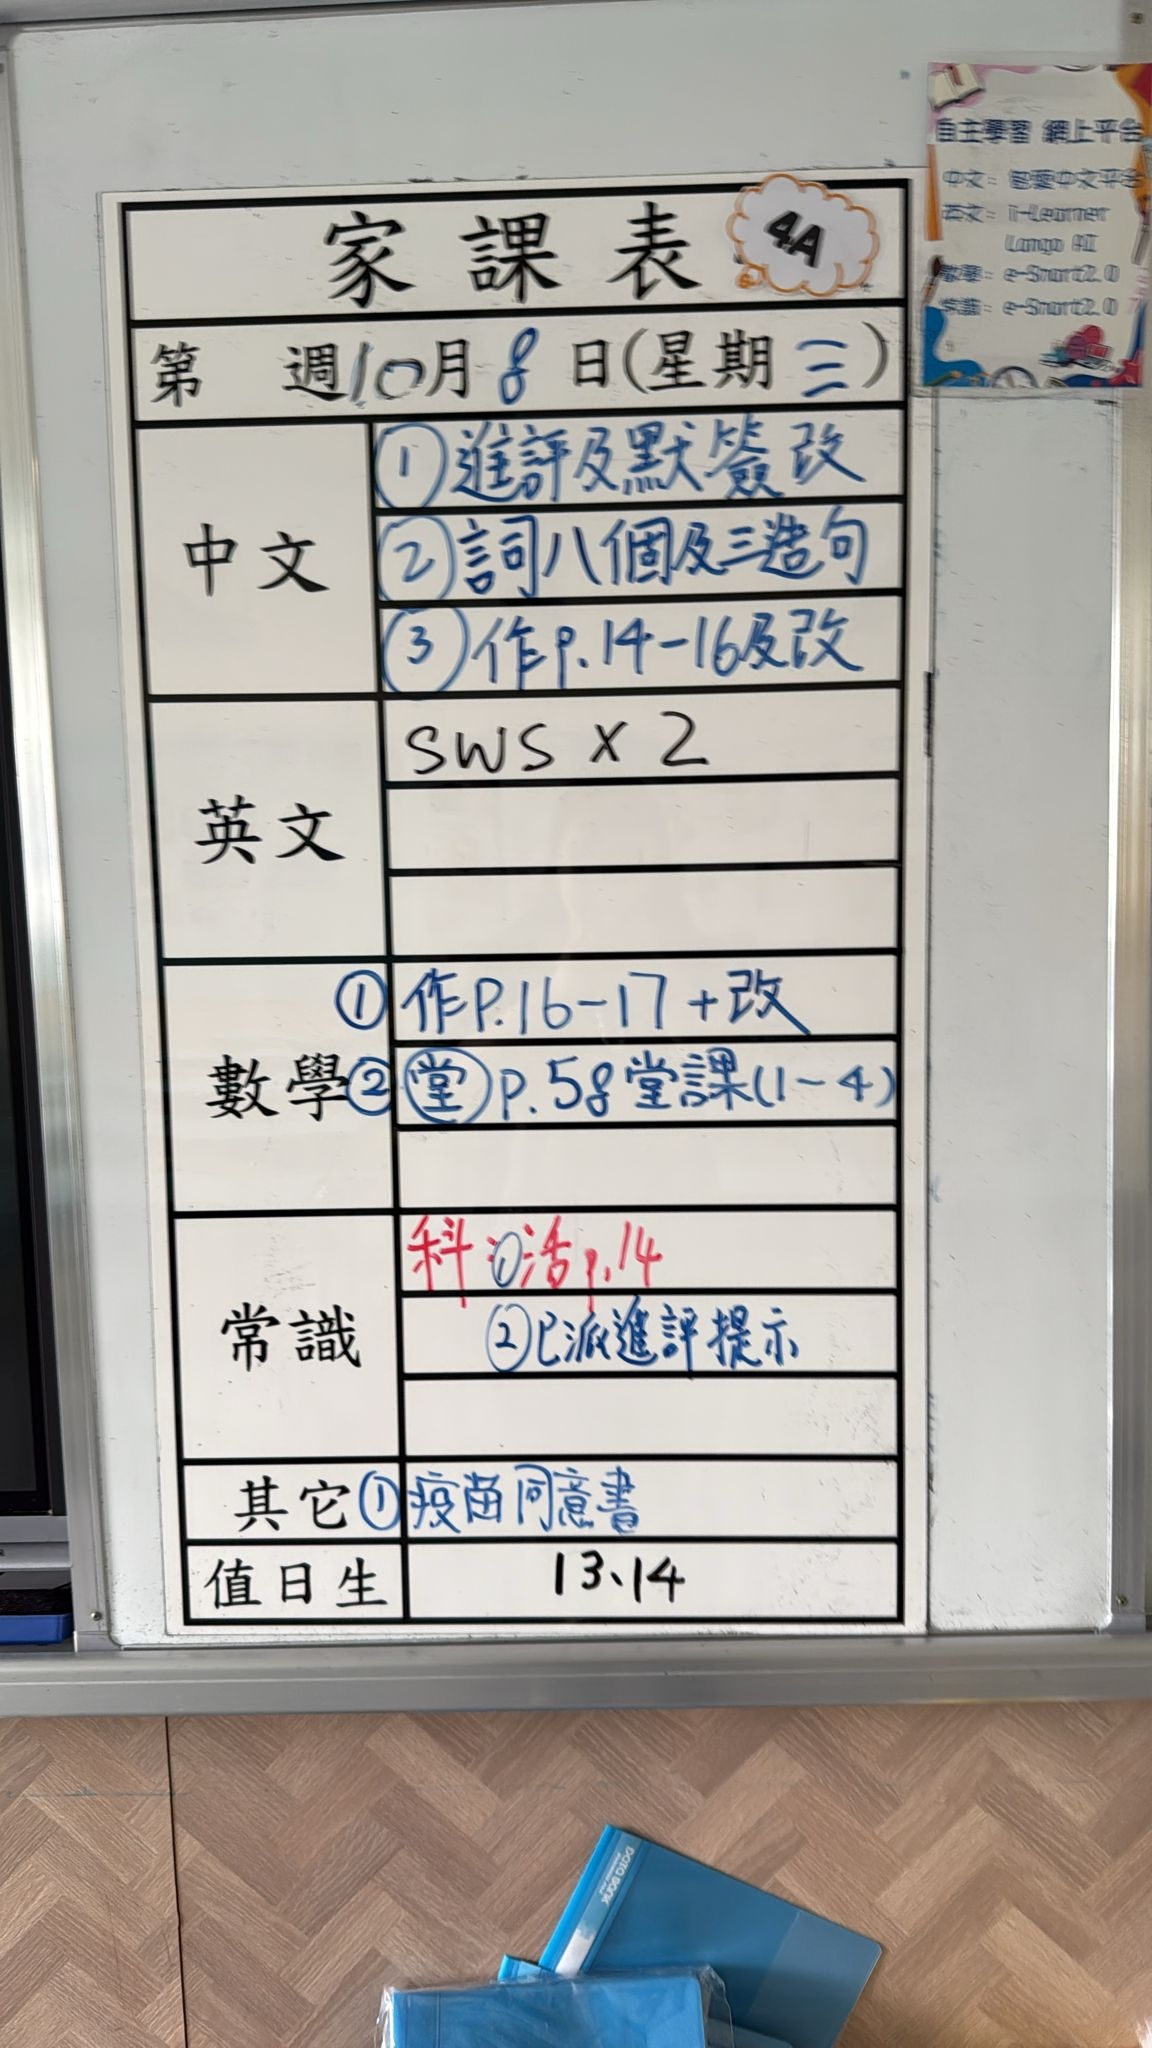 家課表 4A
第 週10月8日(星期三)
中文
①進評及默簽改
②詞八個及三造句
③作p.14-16及改
英文
SWS x 2
數學
①作P.16-17+改
②堂p.58堂課(1-4)
常識
科:①活p.14
②已派進評提示
其它
①疫苗同意書
值日生
13、14
自主學習 網上平台
中文: 中文平台
英文: i-Learner
Lango AI
數學: e-Smart2.0
常識: e-Smart2.0
DATA BOOK